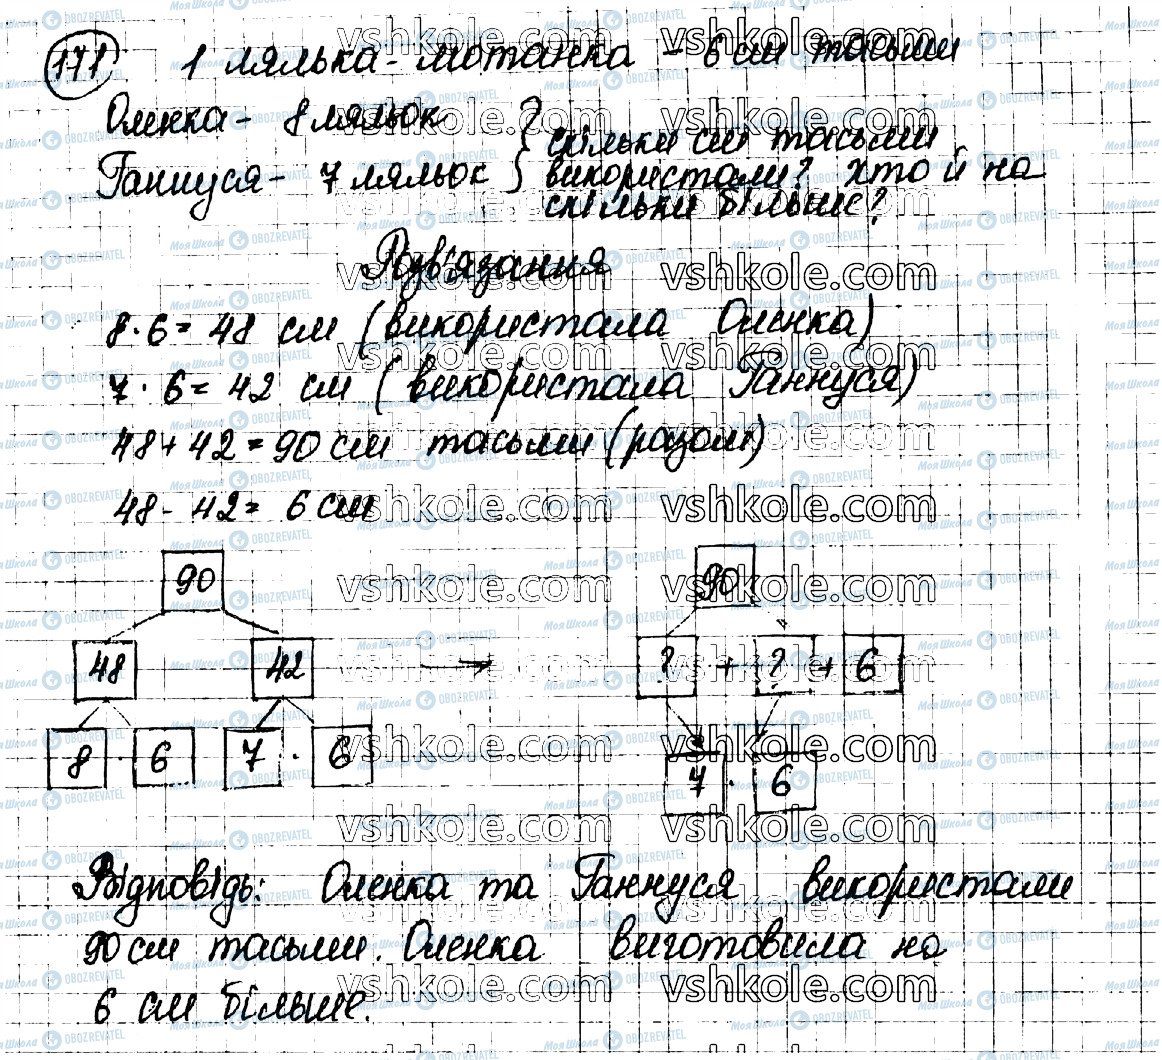 171 1 лялька-мотанка - 6 см тасьми
Оленка - 8 ляльок
Ганнуся - 7 ляльок } скільки см тасьми
використали? хто й на
скільки більше?
Розв'язання
8·6=48 см (використала Оленка)
7·6=42 см (використала Ганнуся)
48+42=90 см тасьми (разом)
48-42=6 см
90 90
48 42 → ? + ? + 6
8 · 6 7 · 6 7 · 6
Відповідь: Оленка та Ганнуся використали
90 см тасьми. Оленка виготовила на
6 см більше.
vshkole.com
Моя Школа OBOZREVATEL